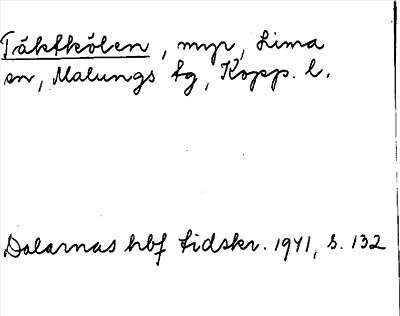 Täktkölen, myr, Lima
sn, Malungs tg, Kopp. l.
Dalarnas hbf tidskr. 1941, s. 132